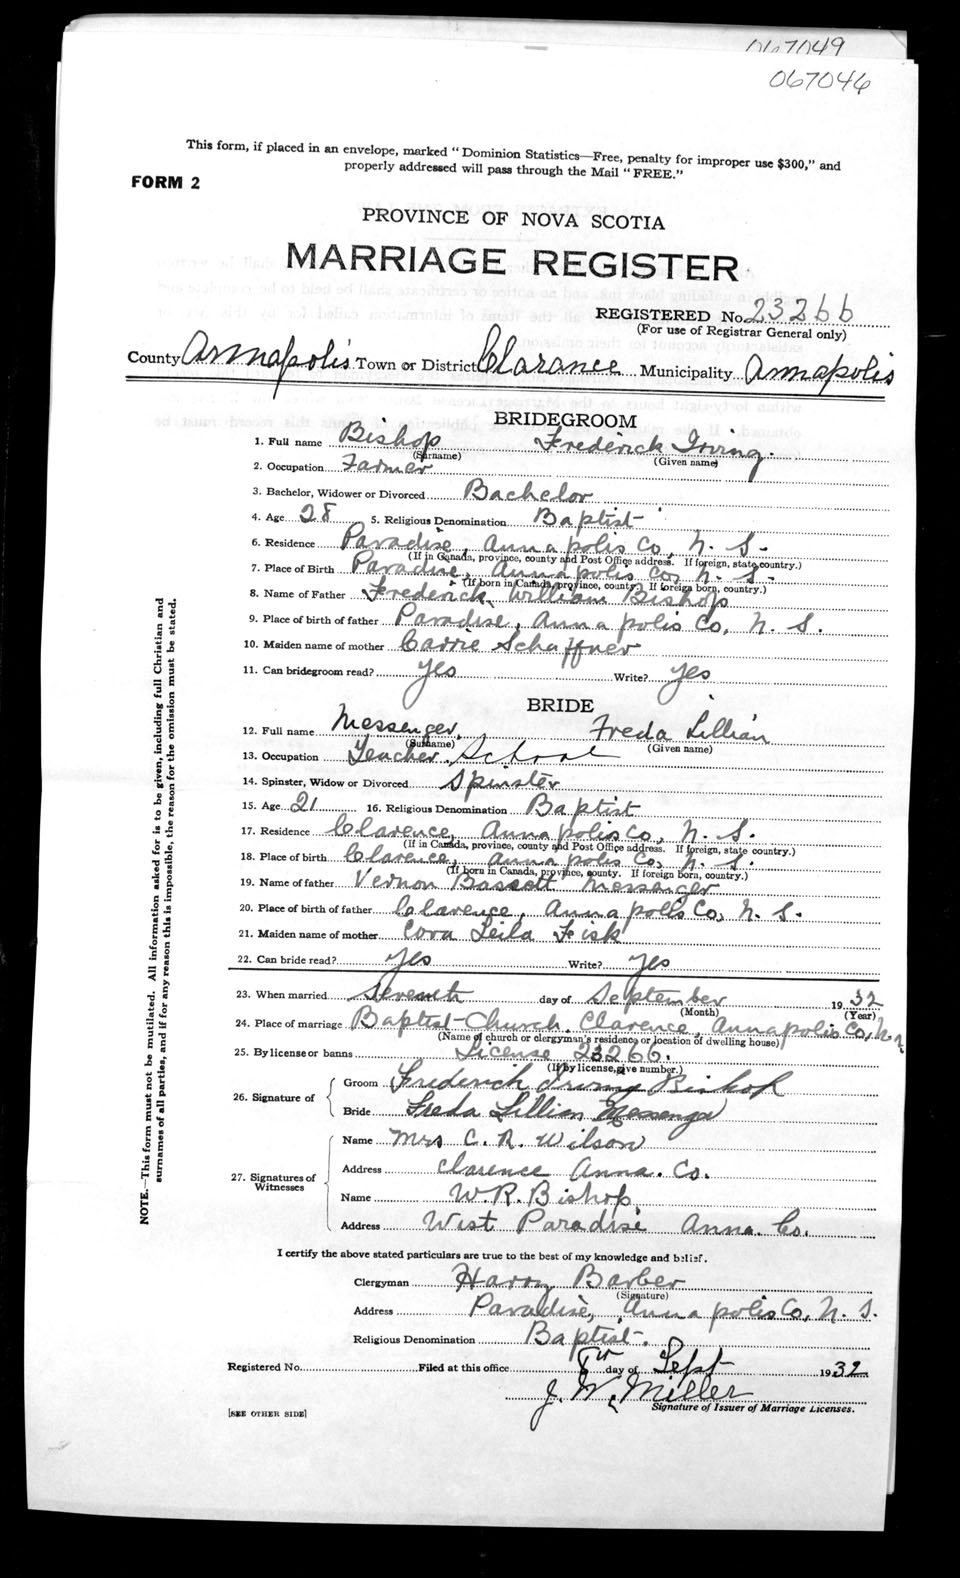 067049
067046
This form, if placed in an envelope, marked "Dominion Statistics—Free, penalty for improper use $300," and
properly addressed will pass through the Mail "FREE."
FORM 2
PROVINCE OF NOVA SCOTIA
MARRIAGE REGISTER
REGISTERED No. 23266
(For use of Registrar General only)
County Annapolis Town or District Clarance Municipality Annapolis
BRIDEGROOM
1. Full name Bishop Frederick Irving.
(Surname) (Given name)
2. Occupation Farmer
3. Bachelor, Widower or Divorced Bachelor
4. Age 28 5. Religious Denomination Baptist
6. Residence Paradise, Annapolis Co, N. S.
(If in Canada, province, county and Post Office address. If foreign, state country.)
7. Place of Birth Paradise, Annapolis Co, N. S.
(If born in Canada, province, county. If foreign born, country.)
8. Name of Father Frederick William Bishop
9. Place of birth of father Paradise, Annapolis Co, N. S.
10. Maiden name of mother Carrie Schaffner
11. Can bridegroom read? Yes Write? Yes
BRIDE
12. Full name Messenger, Freda Lillian
(Surname) (Given name)
13. Occupation Teacher, School
14. Spinster, Widow or Divorced Spinster
15. Age 21 16. Religious Denomination Baptist
17. Residence Clarence, Annapolis Co, N. S.
(If in Canada, province, county and Post Office address. If foreign, state country.)
18. Place of birth Clarence, Annapolis Co, N. S.
(If born in Canada, province, county. If foreign born, country.)
19. Name of father Vernon Bassett Messenger
20. Place of birth of father Clarence, Annapolis Co, N. S.
21. Maiden name of mother Cora Leila Fisk
22. Can bride read? Yes Write? Yes
23. When married Seventh day of September 1932
(Month) (Year)
24. Place of marriage Baptist Church. Clarence, Annapolis Co, N. S.
(Name of church or clergyman's residence or location of dwelling house)
25. By license or banns License 23266.
(If by license, give number.)
26. Signature of
Groom Frederick Irving Bishop
Bride Freda Lillian Messenger
27. Signatures of Witnesses
Name Mrs C. R. Wilson
Address Clarence Anna. Co.
Name W. R. Bishop.
Address West Paradise Anna. Co.
I certify the above stated particulars are true to the best of my knowledge and belief.
Clergyman Harry Barber
(Signature)
Address Paradise, Annapolis Co, N. S.
Religious Denomination Baptist.
Registered No. Filed at this office 8th day of Sept 1932
J. W. Miller
Signature of Issuer of Marriage Licenses.
[SEE OTHER SIDE]
NOTE.—This form must not be mutilated. All information asked for is to be given, including full Christian and
surnames of all parties, and if for any reason this is impossible, the reason for the omission must be stated.